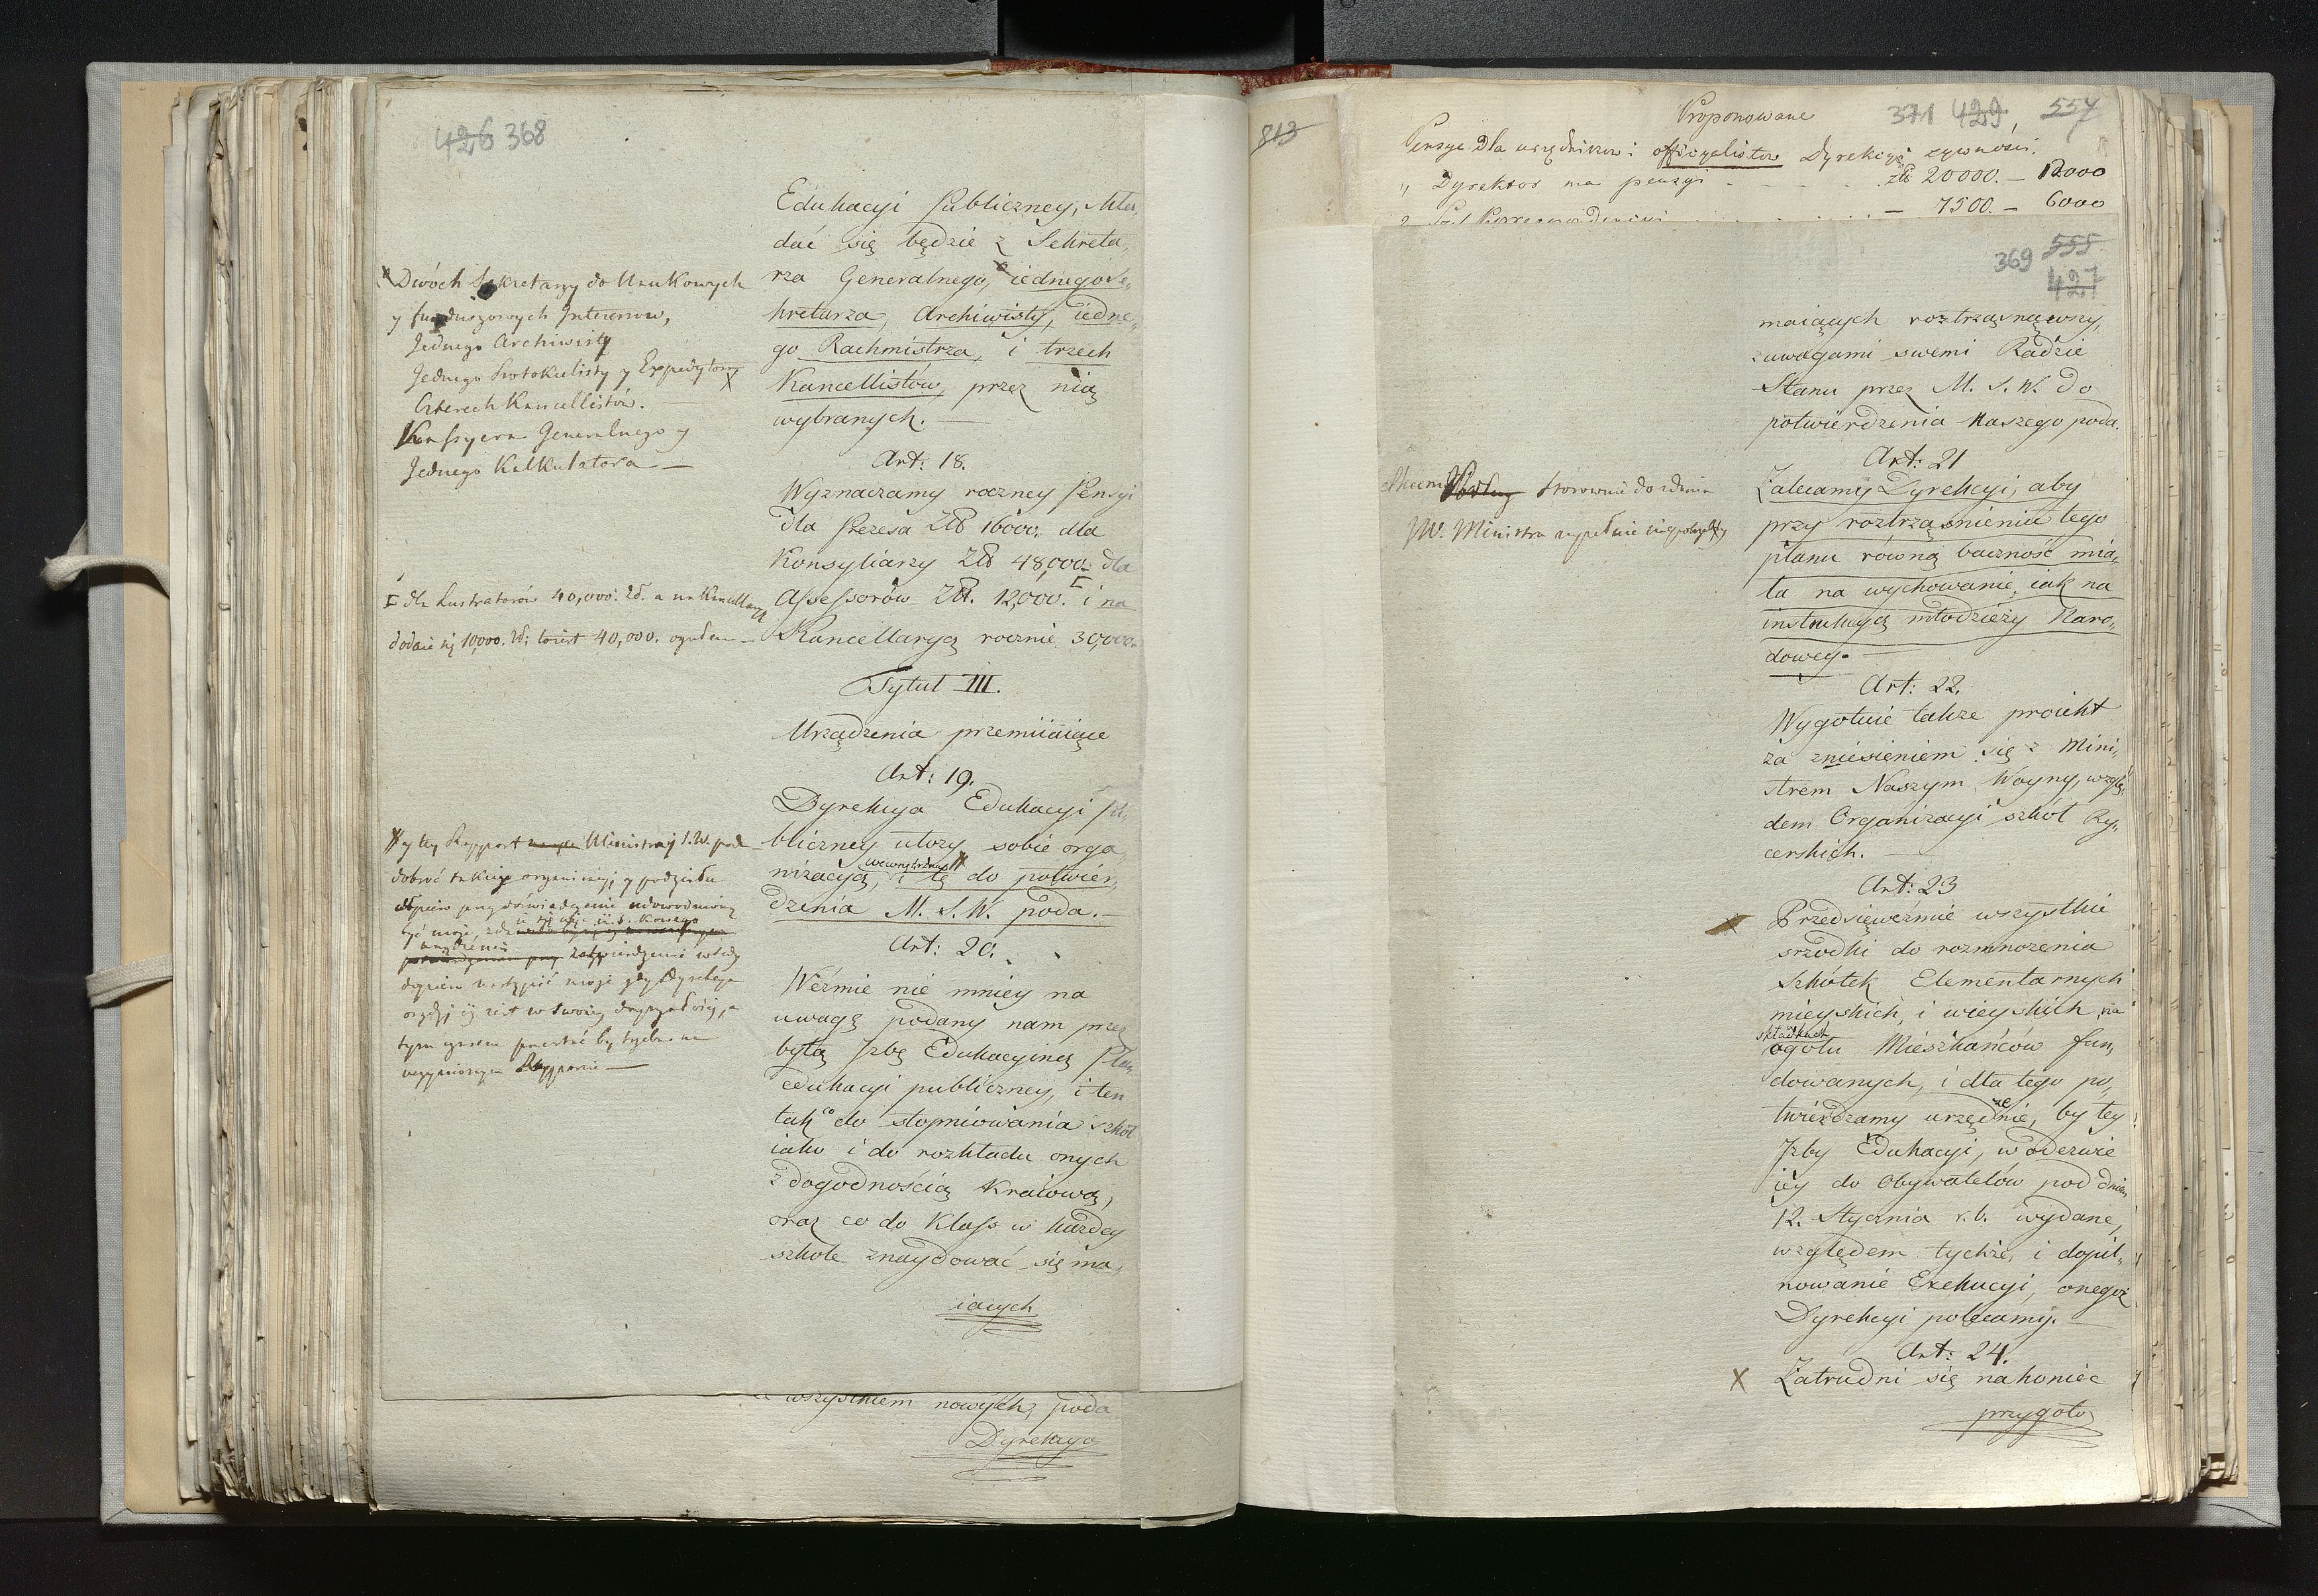 426 368
Edukacyi Publiczney, skła„
dać się będzie z Sekreta„
rza Generalnego, iednego Se„
kretarza, Archiwisty, iedne„
go Rachmistrza, i trzech
Kancellistów, przez nią
wybranych. —
Dwóch Sekretarzy do Naukowych
y funduszowych Interesow,
Jednego Archiwisty
Jednego Protokulisty y Expedytora
Czterech Kancellistów.
Kassyera Generalnego y
Jednego Kalkulatora —
Art: 18.
Wyznaczamy roczney Pensyi
dla Prezesa Zł 16000. dla
Konsyliarzy Zł 48,000. dla
Assessorów Zł. 12,000. i na
Kancellaryą rocznie 30,000.
dla Lustratorów 40,000. Zł. a na Kancellaryą
dodaie się 10,000. Zł; to iest 40,000. ogułem —
Tytuł III.
Urządzenia przemiiaiące
Art: 19.
Dyrekcya Edukacyi Pu„
bliczney ułoży sobie orga„
nizacyą, wewnętrzną i tę do potwier„
dzenia M. S. W. poda. —
y tey Rapport Ministrowi S. W. poda
dobroć takiey organizacyi y podziału
dopiero przez doświadczenie udowodnioną
być może,
zatwierdzenie wtedy
dopiero nastąpić może gdy Dyrekcya
iest w swoiey
tym czasem przestać by trzeba na
uczynionym Rapporcie —
Art: 20.
Weźmie nie mniey na
uwagę podany nam przez
byłą Izbę Edukacyiną Plan
edukacyi publiczney, i ten
tak co do stopniowania szkół
iako i do rozkładu onych
z dogodnością Kraiową,
oraz co do Klass w każdey
szkole znaydować się ma„
iących
wszystkiem nowych, poda
Dyrekcya
813
371 429, 557
Proponowane
Pensye dla urzędnikow i officyalistow Dyrekcyi żywności.
1, Dyrektor ma pensyi . . . . . zł 20000. — 12000
— 7500. — 6000
369 555
427
maiących roztrząsnąwszy,
z uwagami swemi Radzie
Stanu przez M. S. W. do
potwierdzenia Naszego poda.
Art: 21
Zalecamy Dyrekcyi, aby
przy roztrząśnieniu tego
planu równą baczność mia„
ła na wychowanie, iak na
instrukcyą młodzieży Naro„
dowey. —
Stosownie do zdania
JW. Ministra zupełnie
Art: 22.
Wygotuie także proiekt
za zniesieniem się z Mini„
strem Naszym Woyny, wzglę„
dem Organizacyi szkół Ry„
cerskich. —
Art: 23
Przedsięweźmie wszystkie
srzodki do rozmnożenia
Szkółek Elementarnych
mieyskich, i wieyskich, na
składkach
ogółu Mieszkańców fun„
dowanych, i dla tego po„
twierdzamy urządzenie, by tey
Izby Edukacyi, w odezwie
iey do Obywatelów pod dniem
12. Stycznia r. b. wydane,
względem tychże, i dopil„
nowanie Exekucyi, onegoż
Dyrekcyi polecamy. —
Art: 24.
X Zatrudni się nakoniec
przygoto„